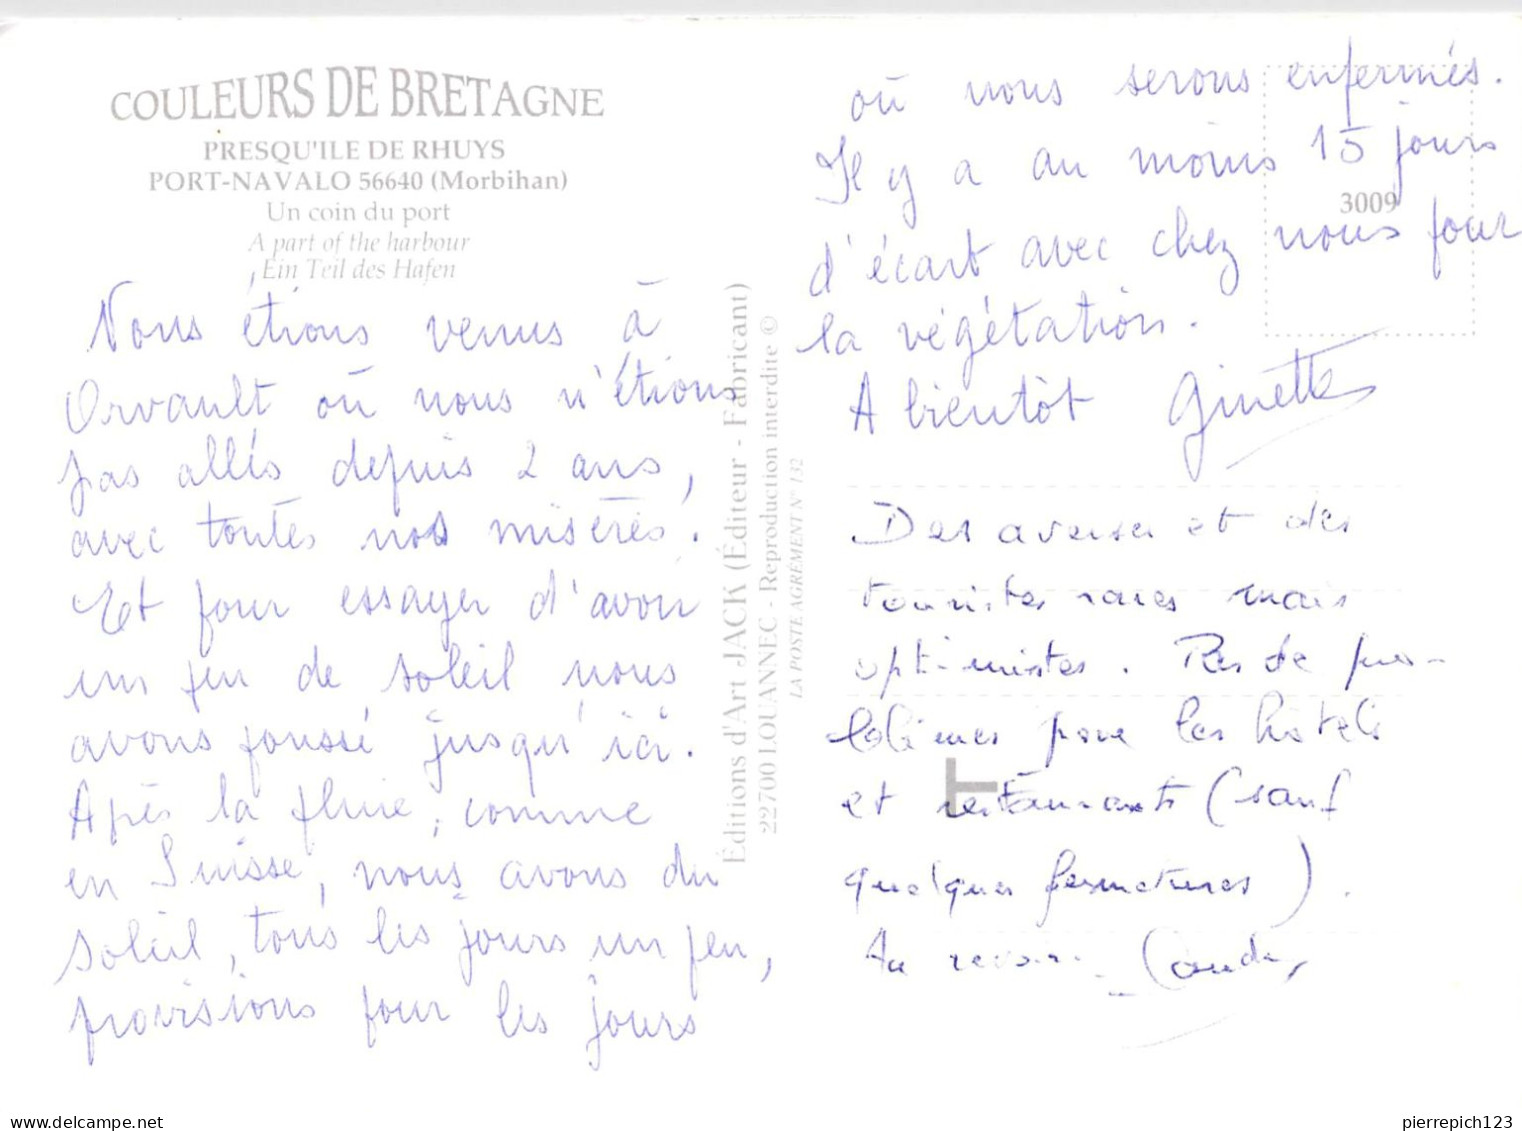 COULEURS DE BRETAGNE
PRESQU'ILE DE RHUYS
PORT-NAVALO 56640 (Morbihan)
Un coin du port
A part of the harbour
Ein Teil des Hafen
Nous étions venus à
Orvault où nous n'étions
pas allés depuis 2 ans,
avec toutes nos misères.
Et pour essayer d'avoir
un peu de soleil nous
avons poussé jusqu'ici.
Après la pluie, comme
en Suisse, nous avons du
soleil, tous les jours un peu,
provisions pour les jours
Éditions d'Art JACK (Éditeur - Fabricant)
22700 LOUANNEC - Reproduction interdite ©
LA POSTE AGRÉMENT N° 132
où nous serons enfermés.
Il y a au moins 15 jours
3009
d'écart avec chez nous pour
la végétation.
A bientôt Ginette
Des averses et des
touristes rares mais
optimistes. Pas de pro-
blèmes pour les hôtels
et restaurants (sauf
quelques fermetures).
Au revoir.
T
pierrepich123
delcampe.net